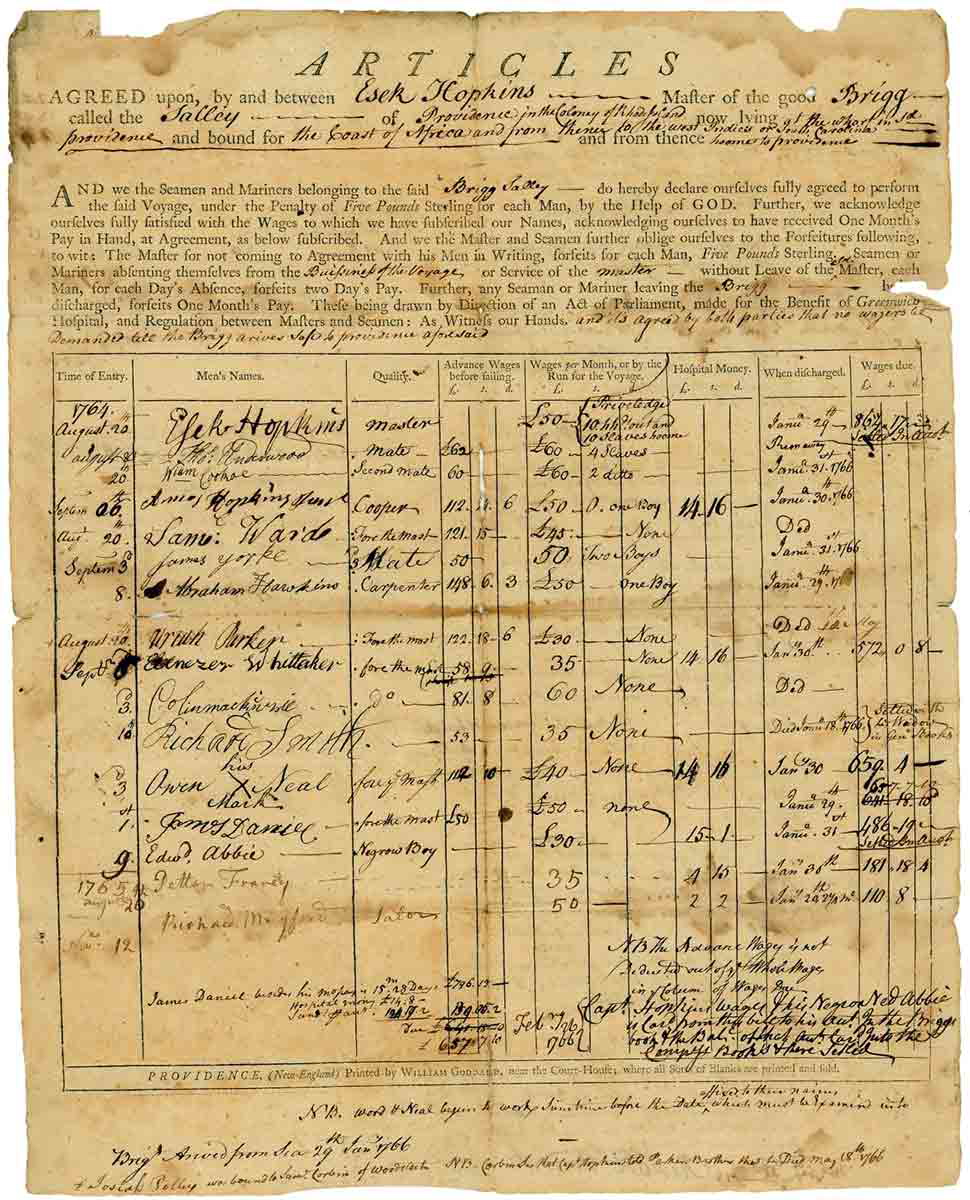 ARTICLES
AGREED upon, by and between Esek Hopkins Master of the good Brigg
called the Salley of Providence in the Coloney of now lying at the wharf in sd
providence and bound for the Coast of Africa and from thence to the west Indies or South Carolina and from thence hoome to providence
AND we the Seamen and Mariners belonging to the said Brigg Salley do hereby declare ourselves fully agreed to perform
the said Voyage, under the Penalty of Five Pounds Sterling for each Man, by the Help of GOD. Further, we acknowledge
ourselves fully satisfied with the Wages to which we have subscribed our Names, acknowledging ourselves to have received One Month's
Pay in Hand, at Agreement, as below subscribed. And we the Master and Seamen further oblige ourselves to the Forfeitures following,
to wit: The Master for not coming to Agreement with his Men in Writing, forfeits for each Man, Five Pounds Sterling. Seamen or
Mariners absenting themselves from the Buisness of the Voyage or Service of the master without Leave of the Master, each
Man, for each Day's Absence, forfeits two Day's Pay. Further, any Seaman or Mariner leaving the Brigg
discharged, forfeits One Month's Pay. These being drawn by Direction of an Act of Parliament, made for the Benefit of Greenwich
Hospital, and Regulation between Masters and Seamen: As Witness our Hands. and it is agreed by both parties that no wagers be
Demanded till the Brigg arives Safe to providence aforesaid
Time of Entry. Men's Names. Quality. Advance Wages before sailing. Wages per Month, or by the Run for the Voyage. Hospital Money. When discharged. Wages due.
£. s. d. £. s. d. £. s. d. £. s. d.
1764
August 20 Esek Hopkins master £50 Priveledge 10 hhd out and 10 Slaves hoome Janr 29 864 17
august Underwood Mate £60 £60 4 Slaves Run away
20th Wiam Second mate 60 £60 2 ditto Janr. 31st 1766
Septem 26th Amos Hopkins Cooper 112 11 6 £50 one Boy 14 16 Janr 30th 1766
Augt 20th Saml. Ward Fore the mast 121 15 £45 None Died
Septem 3d James Yorke 3d Mate 50 50 Two Boys Janr. 31st 1766
8 Abraham Hawkins Carpenter 148 6 3 £50 one Boy Janr 29th
August 20th Uriah Parker Fore the mast 122 18 6 £30 None Died
Septr Ebenezer Whittaker fore the mast 58 9 35 None 14 16 Janr 30th 572 0 8
3d Colin do 81 8 60 None Died
10th Richard Smith 53 35 None Died Janr 18th 1766 Settled with his Widow
3d Owen his X Mark Neal fore ye Mast 112 10 £40 None 14 16 Janr 30 659 4
1st James Daniel fore the mast £50 £50 none Janr 29th 641 18 10
9 Edwd. Abbie Negrow Boy £30 15 1 Janr 31st 486 19
1765 August 26 Franey 35 4 15 Janr 30th 181 18 4
Novr 12 Richard Sailor 50 2 2 Janr 29th 110 8
NB The Advance Wages is not
Deducted out of ye Whole Wages
in ye Column of Wages Due
James Daniel besides his mo pay is 15m 28 Days £796 13
Hospital mony £14.8
Due
£ 657 7 10
Febr 1766
Capt. Hopkins Wages & his Negroe Ned Abbie
is Card from this bill to his Aut. in the Briggs
book & the Bal. of sd Aut. Card into the
Companys Books & there Setled
PROVIDENCE, (New-England) Printed by WILLIAM GODDARD, near the Court-House; where all Sorts of Blanks are printed and sold.
NB. Word & Neal begun to work Sumtime before the Date affixed to their names, which must be Examined into
Brigg Arived from Sea 29th Janr 1766
Josiah Polley was bound to Saml. Corbin of Woodstock NB Corbin Ses that Capt Hopkins told Brother that he Died May 18th 1766